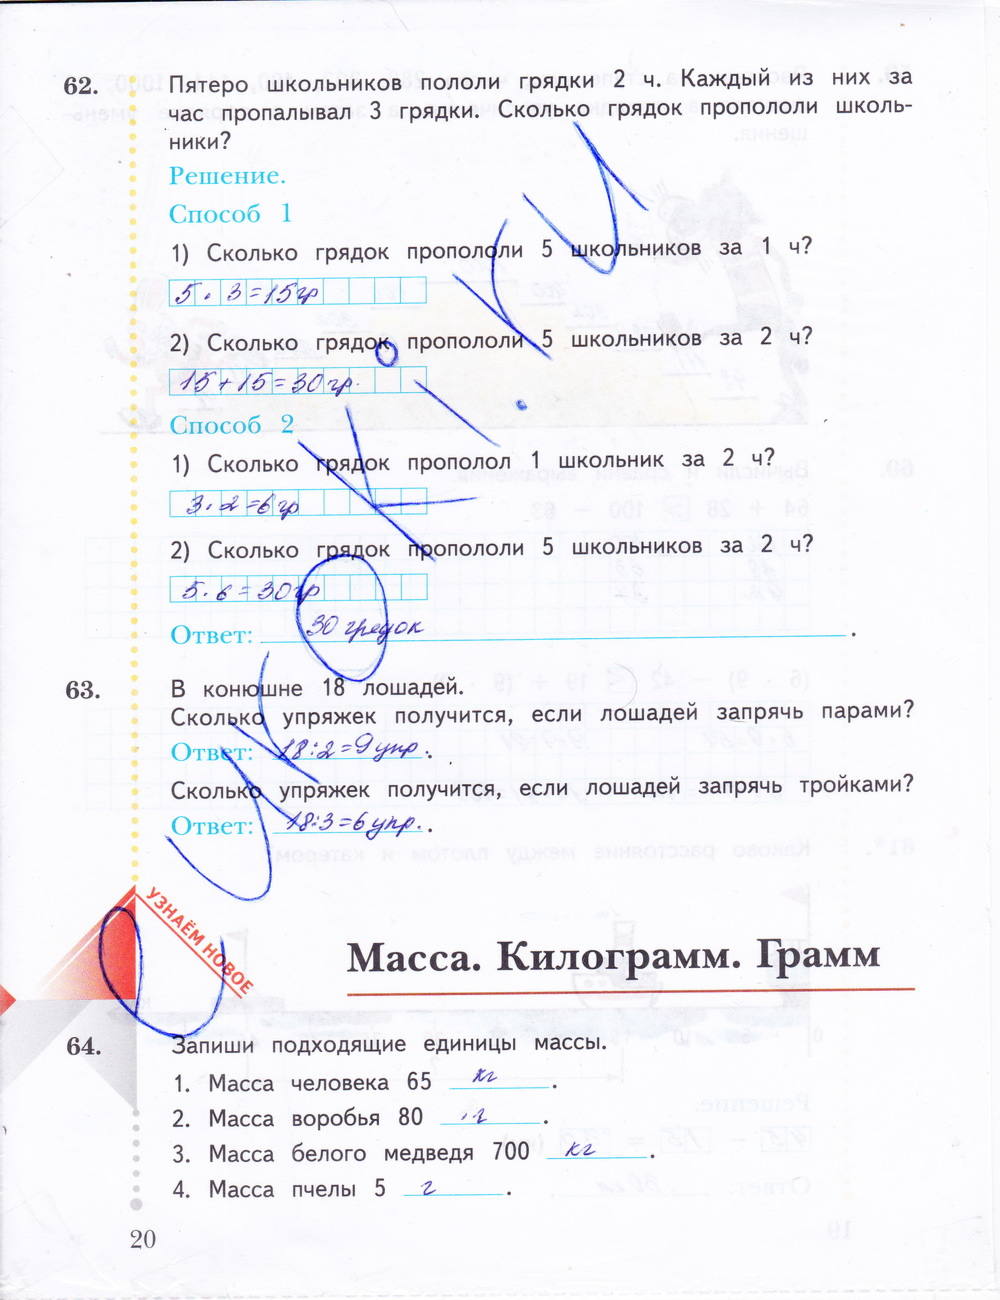 62. Пятеро школьников пололи грядки 2 ч. Каждый из них за
час пропалывал 3 грядки. Сколько грядок пропололи школь-
ники?
Решение.
Способ 1
1) Сколько грядок пропололи 5 школьников за 1 ч?
5 · 3 = 15 гр
2) Сколько грядок пропололи 5 школьников за 2 ч?
15 + 15 = 30 гр.
Способ 2
1) Сколько грядок прополол 1 школьник за 2 ч?
3 · 2 = 6 гр
2) Сколько грядок пропололи 5 школьников за 2 ч?
5 · 6 = 30 гр
Ответ: 30 грядок.
63. В конюшне 18 лошадей.
Сколько упряжек получится, если лошадей запрячь парами?
Ответ: 18 : 2 = 9 упр.
Сколько упряжек получится, если лошадей запрячь тройками?
Ответ: 18 : 3 = 6 упр..
УЗНАЁМ НОВОЕ
Масса. Килограмм. Грамм
64. Запиши подходящие единицы массы.
1. Масса человека 65 кг.
2. Масса воробья 80 г.
3. Масса белого медведя 700 кг.
4. Масса пчелы 5 г.
20